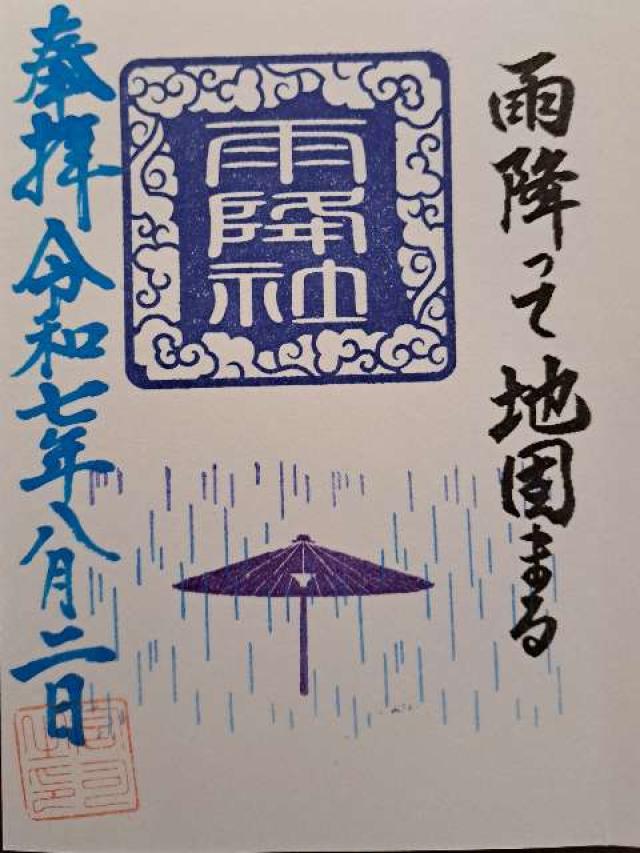 雨降って地固まる
雨降社
奉拝 令和七年八月二日